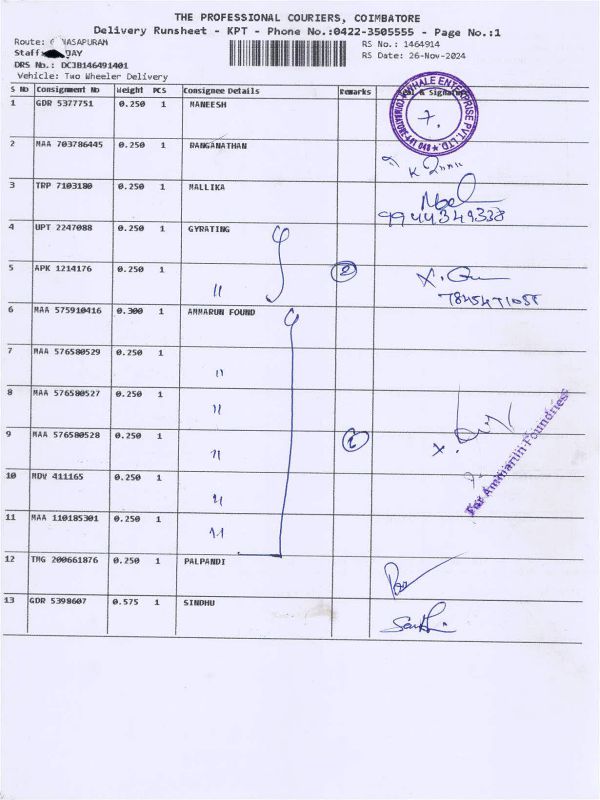 THE PROFESSIONAL COURIERS, COIMBATORE
Delivery Runsheet - KPT - Phone No.:0422-3505555 - Page No.:1
Route: NASAPURAM
RS No.: 1464914
Staff: JAY
RS Date: 26-Nov-2024
DRS No.: DCJB146491401
Vehicle: Two Wheeler Delivery
S No Consignment No Weight PCS Consignee Details Remarks & Signature
1 GDR 5377751 0.250 1 MANEESH
2 MAA 703786445 0.250 1 RANGANATHAN
3 TRP 7103180 0.250 1 MALLIKA
9944349338
4 UPT 2247088 0.250 1 GYRATING
5 APK 1214176 0.250 1 "
6 MAA 575910416 0.300 1 AMMARUN FOUND
7 MAA 576580529 0.250 1 "
8 MAA 576580527 0.250 1 "
9 MAA 576580528 0.250 1 "
For Ammarun Foundries
10 MDV 411165 0.250 1 "
11 MAA 110185301 0.250 1 "
12 TMG 200661876 0.250 1 PALPANDI
13 GDR 5398607 0.575 1 SINDHU